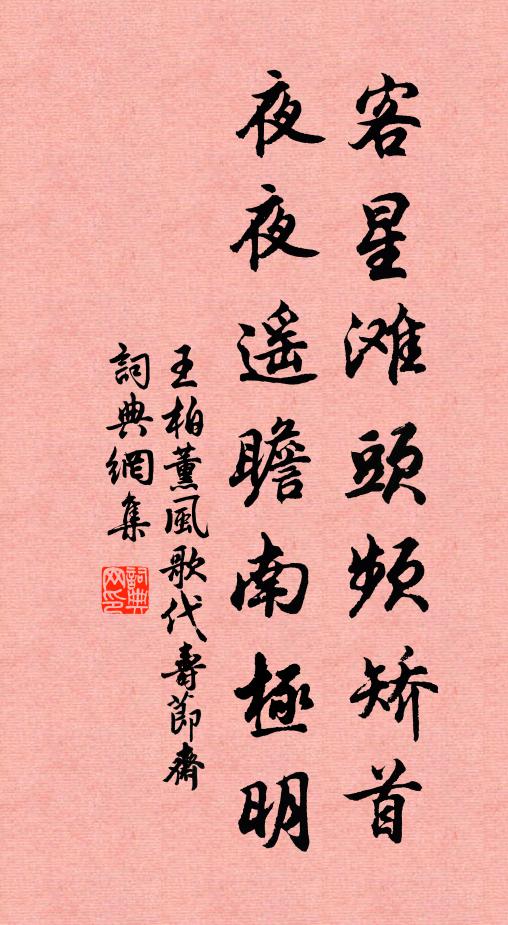 客星滩頭頻矫首
夜夜遥瞻南極明
王柏薰風歌代壽節齋
詞典網集
詞典网印